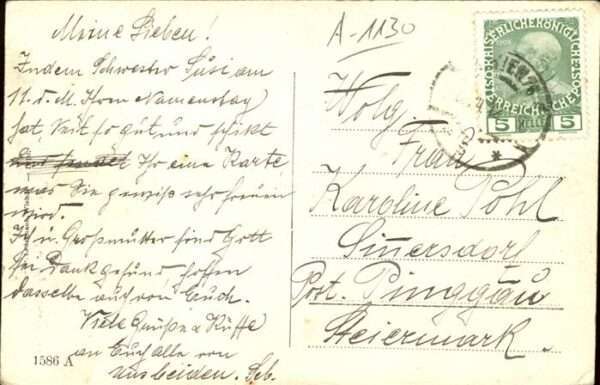 Meine Lieben!
Indem Schwester Susi am
11. d. M. Ihren Namenstag
hat, seit so gut und schikt
und sendet Ihr eine Karte
was Sie gewiß sehr freuen
wird.
Ich u. Großmutter sind Gott
sei Dank gesund, hoffen
dasselbe auch von Euch.
Viele Grüße u Küsse
an Euch alle von
uns beiden. Seb.
1586 A
A-1130
KAISERLICHE KÖNIGLICHE
ÖSTERREICHISCHE
5 5
WIEN
Wolg.
Frau
Karoline Pohl
Sinersdorf
Post. Pinggau
Steiermark.